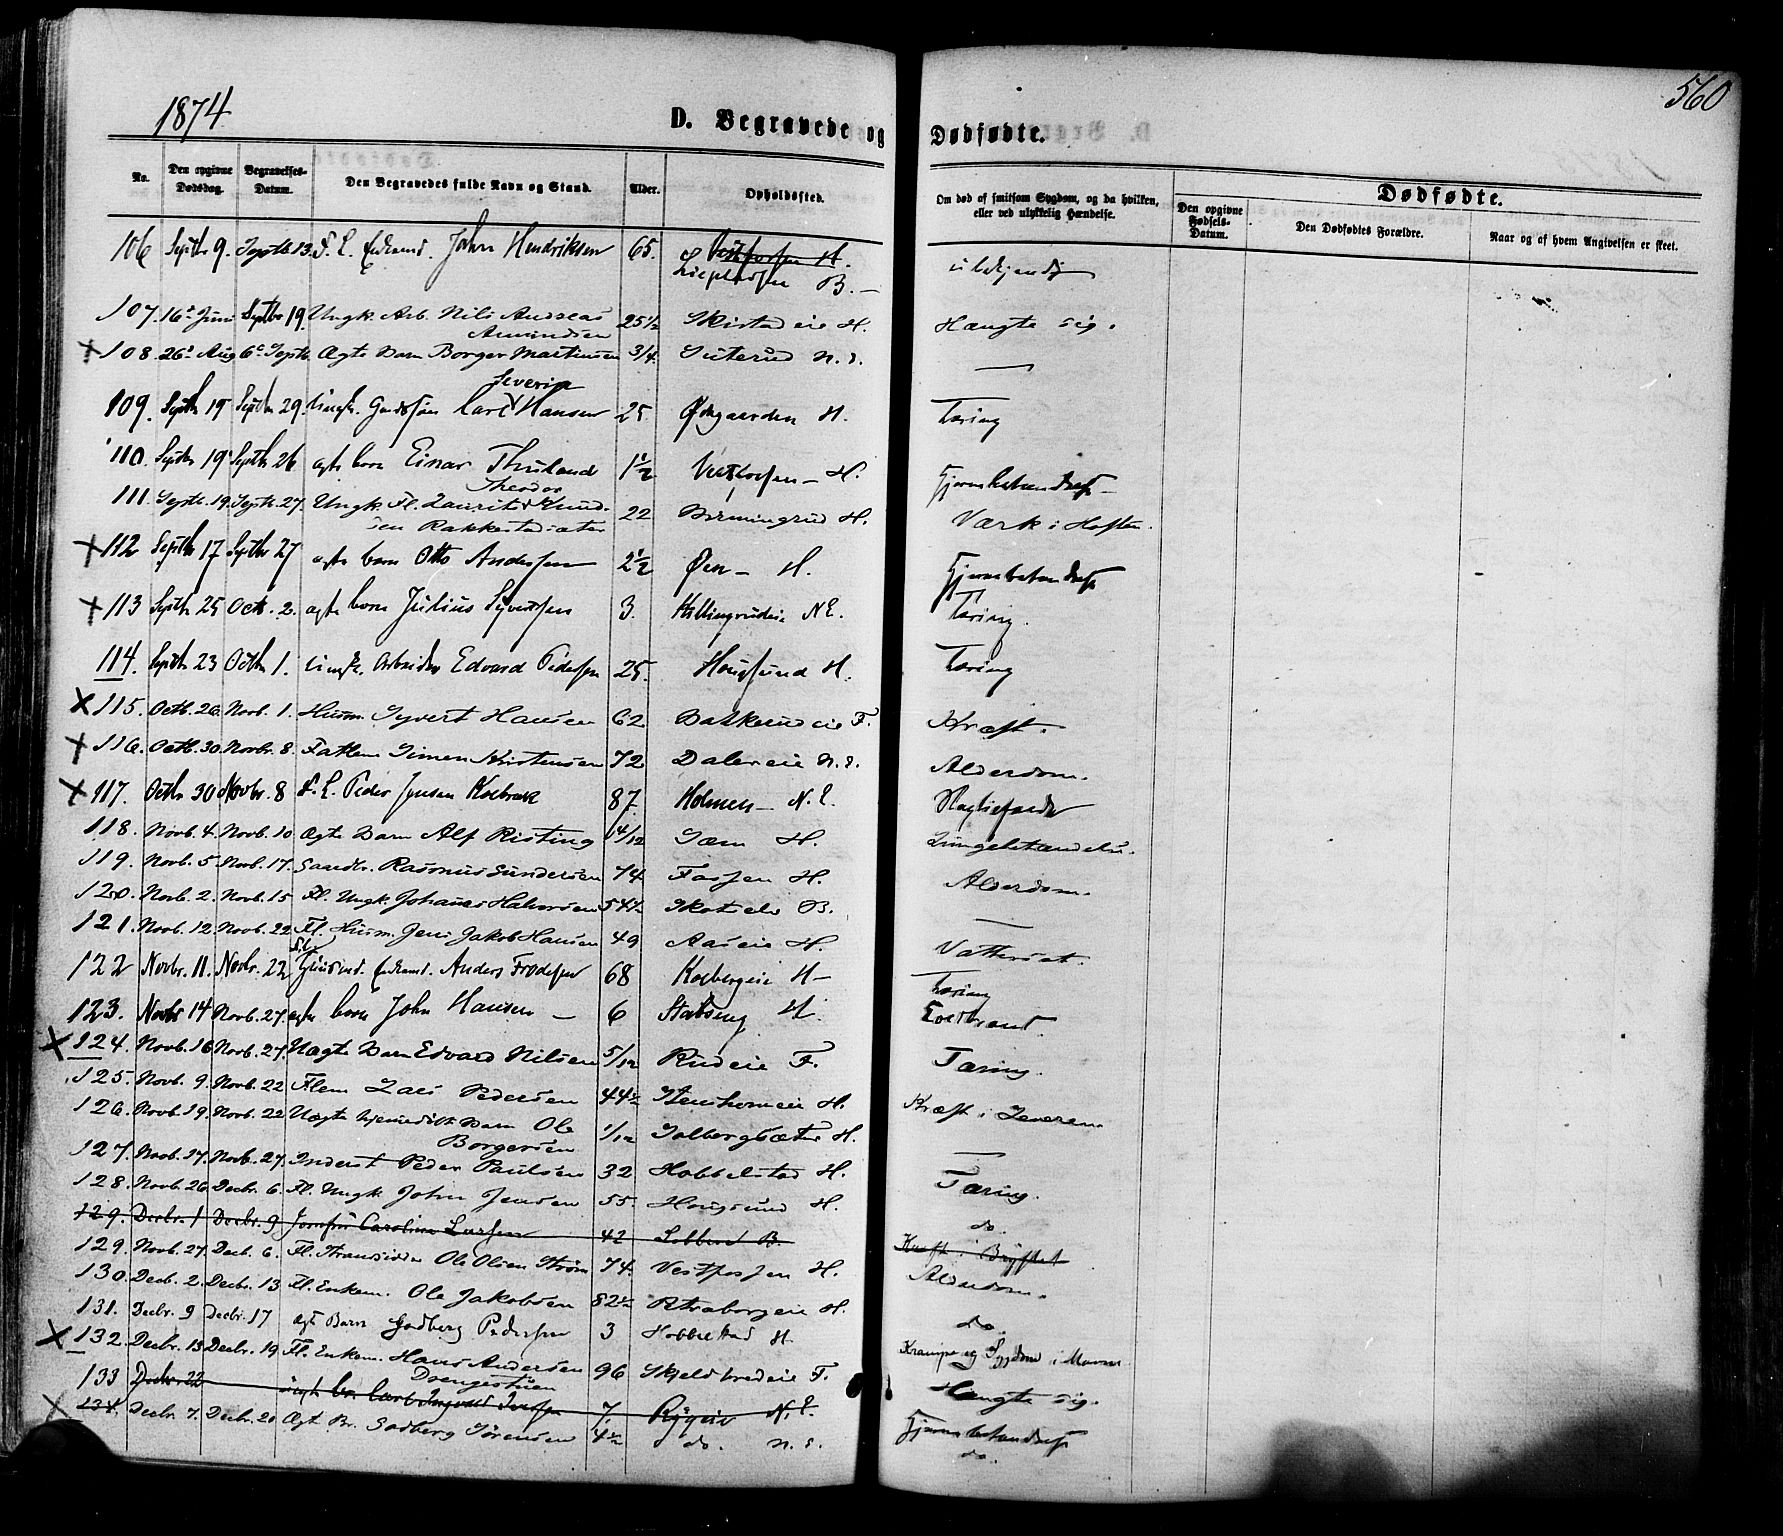 1874
560
D. Begravede og Dødfødte.
No. Den opgivne Dødsdag. Begravelses-Datum. Den Begravedes fulde Navn og Stand. Alder. Opholdssted. Om død af smitsom Sygdom, og da hvilken, eller ved ulykkelig Hændelse. Dødfødte.
Den opgivne Fødsels-Datum. Den Dødfødtes Forældre. Naar og af hvem Angivelsen er skeet.
106 Septbr 9. Septb. 13. F. E. John Hendriksen 65. Vestfossen H. B. ubekjendt
107. 16 Juni Septbr 19. Ungk. Arb. Nils Andreas Amundsen 25 1/2 Skistad eie H. Hængte sig.
108. 26 Aug 6 Septb. Ægte Barn Borger Martinsen 3/4. N. E. —
109. Septb 19 Septbr 29. Ungk. Carl Severin Hansen 25. Ødegaarden H. Tæring
110. Septbr 19 Septb 26 ægte barn Einar Thuland 1 1/2 Vestfossen — H. Hjernebetændelse
111. Septb. 19. Septb. 27. Ungk. Fl. Laurits Theodor Knudsen Rakkestadsæter 22 H. Værk i Hoften.
112 Septbr 17 Septbr 27 ægte barn Otto Anderssen 2 1/2 Øen — H. Hjernebetændelse
113 Septb 25 Octb. 2. ægte barn Julius Syvertsen 3. N. E. Tæring.
114. Septbr 23 Octbr 1. Ungk. Arbeider Edvard Pederssen 25. Hougsund H. Tæring
115. Octb. 26. Novb. 1. Husm. Syvert Hansen 62 Bakkerud eie F. Kræft.
116. Octb. 30. Novbr. 8. Fattlem Simen Kristensen 72 Daler eie N. E. Alderdom.
117. Octbr 30 Novbr. 8 F. E. Peder Jensen Kolbræk 87. Holmen — N. E.
118. Novb. 4. Novb. 10 Ægte Barn Alf Risting 4/12 Sem H. Lungebetændelse.
119. Novb. 5. Novb. 17. Gaardbr. Rasmus Gundersen 74 Fossen H. Alderdom.
120. Novb. 2. Novb. 15 Fl. Ungk. Johannes Halvorsen 54 1/2 Skotselv B. —
121. Novb. 12. Novb. 22 Fl. Husm. Jens Jakob Hansen 49 Aaseie H. Vattersot.
122 Novbr. 11. Novbr. 22 Anders Frodesen 68 Kolbergeie H — Tæring
123. Novbr 14 Novb. 27. ægte barn John Hansen — 6 H. Coldbrand.
124. Novb. 16 Novb. 27. Uægte Barn Edvard Nilsen 5/12 Rudeie F. Tæring.
125. Novb. 9. Novb. 22 Flem Lars Pedersen 44 1/2 Stenhomeie H. Kræft i Leveren.
126. Novb. 19. Novb. 22 Uægte hjemmedøbt Barn Ole Borgersen 1/12 Solbergsæter H. —
127. Novb. 17. Novb. 27. Inderst Peder Paulsen 32 Hobbelstad H. Tæring.
128. Novb. 26 Decbr. 6. Fl. Ungk John Jensen 55. Hougsund H. do.
129. Decbr. 1 Decbr. 9 Jomfru Caroline Larsen 42 B. Kræft i Brystet
129. Novb. 27. Decb. 6. Fl. Strandsidder Ole Olsen Strøm 74. Vestfossen H. Alderdom.
130. Decb. 2. Decbr. 13 Fl. Enkem. Ole Jakobsen 82 1/2 H. do.
131. Decbr. 9 Decbr. 17 Ægte Barn Godberg Pedersen 3 Hobbelstad H. Krampe og Sygdom i Maven
132. Decbr. 13 Decbr. 19 Fl. Enkem. Hans Andersen Drengestuen 96 Skjeldbredeie F. Hængte sig.
133 Decbr 22 ægte barn Carl Ingvald 7. N. E. Hjernebetændelse
134. Decbr. 7. Decbr. 20 Ægt. Br. Godberg Sørensen 4 1/2 do. N. E. do.